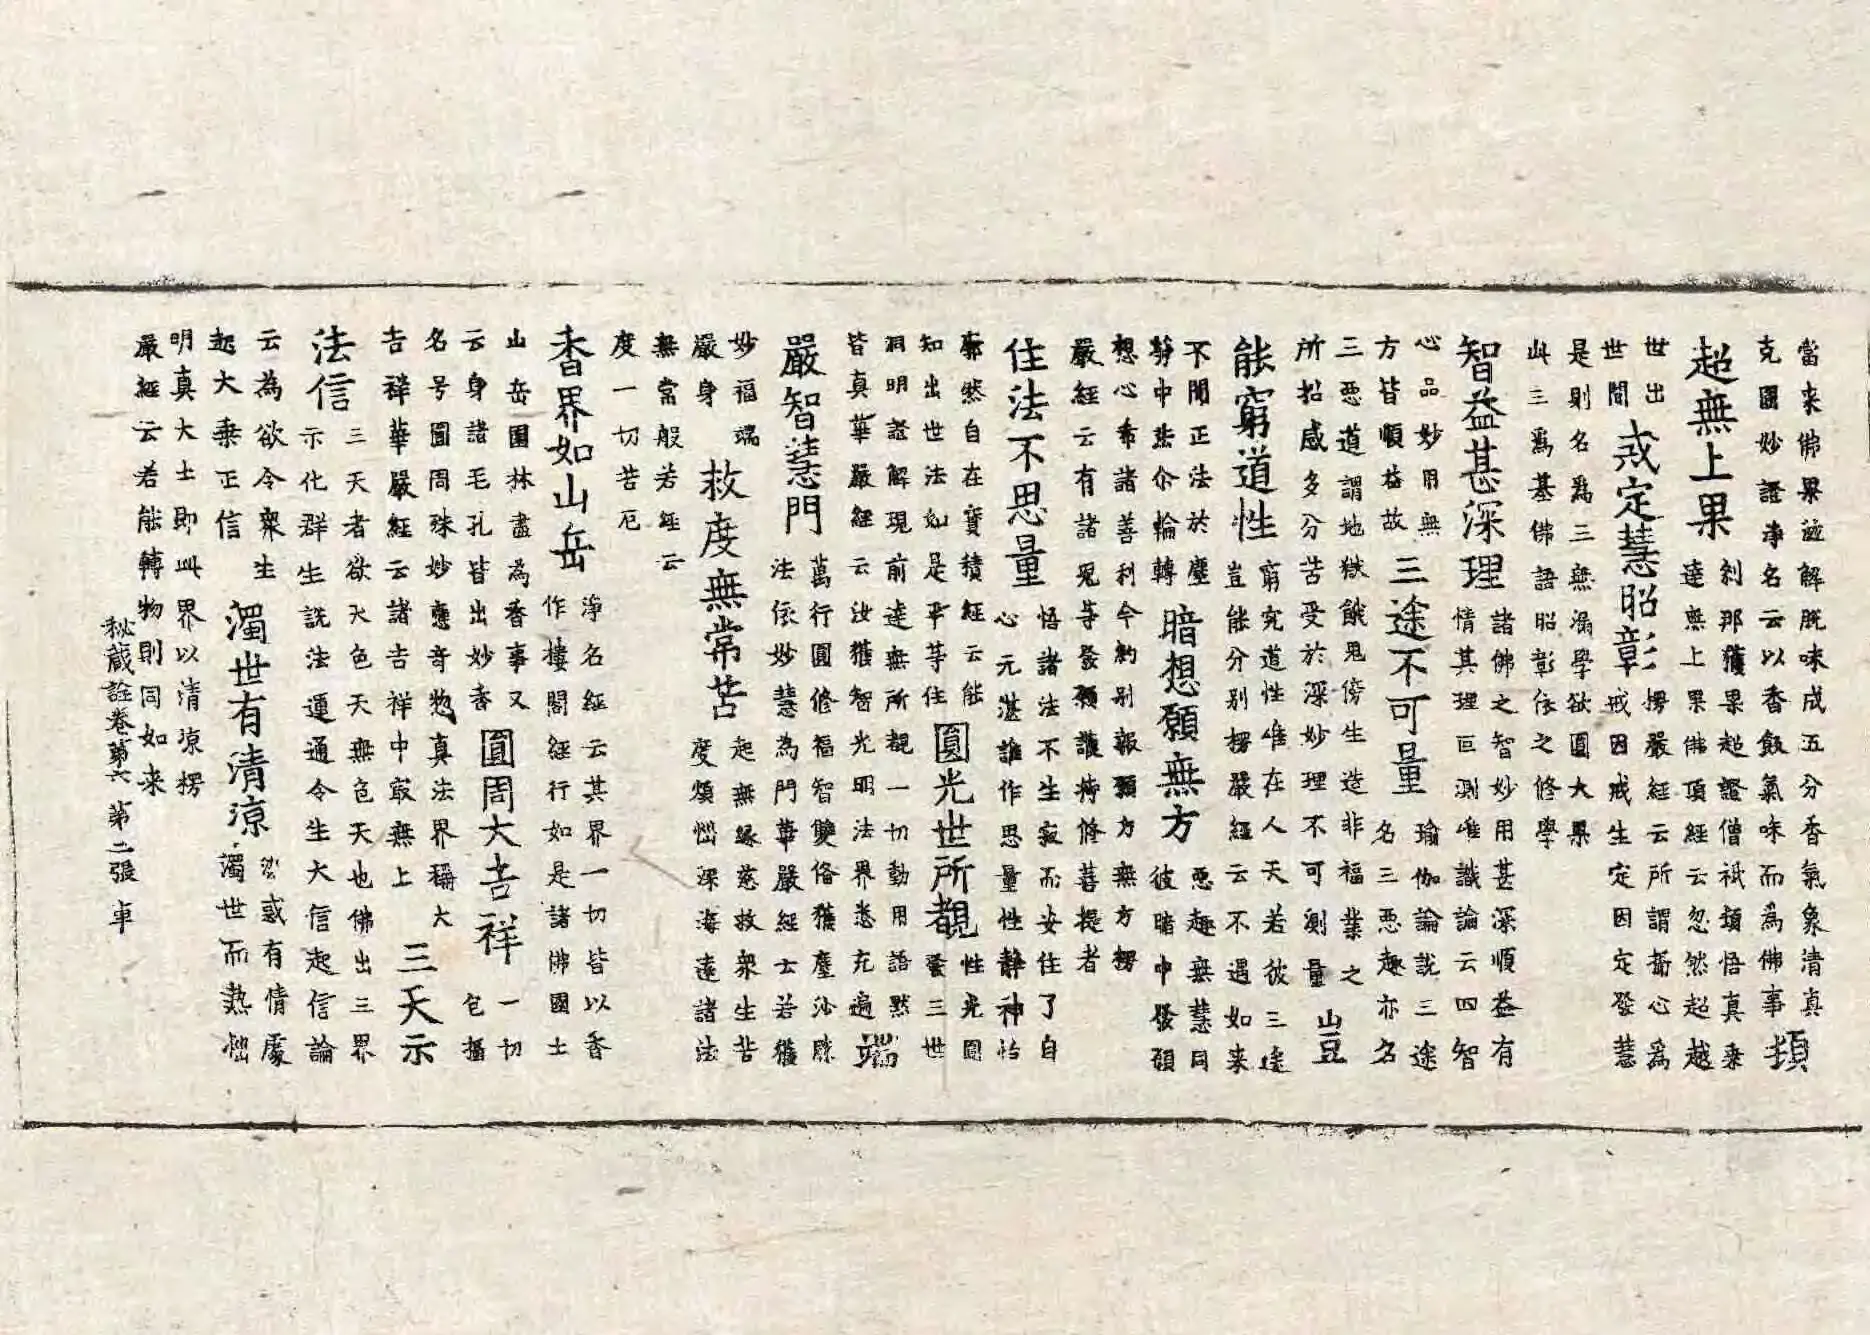 當来佛果遊解脱味成五分香氣象清真
克國妙證淨名云以香飯氣味而為佛事
頓
超無上果
刹那獲果超證僧祇頓悟真乗
達無上果佛頂經云忽然超越
世出
世間
戒定慧昭彰
楞嚴經云所謂攝心為
戒因戒生定因定發慧
是則名為三無漏學欲圓大果
此三為基佛語昭彰依之修學
智益甚深理
諸佛之智妙用甚深順益有
情其理叵測唯識論云四智
心品妙用無
方皆順益故
三途不可量
瑜伽論說三途
名三惡趣亦名
三惡道謂地獄餓鬼傍生造非福業之
所招感多分苦受於深妙理不可測量
豈
能窮道性
窮究道性唯在人天若彼三途
豈能分别楞嚴經云不遇如来
不聞正法於塵
勞中輪轉
暗想願無方
惡趣無慧同
彼暗中發願
想心希諸善利今約别報願方無方楞
嚴經云有諸鬼等發願護持修菩提者
住法不思量
悟諸法不生寂而安住了自
心元湛誰作思量性静神怡
廓然自在寶積經云能
知出世法如是平等住
圓光世所覩
性光圓
鑒三世
洞明證解現前達無所覩一切動用語默
皆真華嚴經云汝獲智光明法界悉充遍
端
嚴智慧門
萬行圓修福智雙俻獲塵沙勝
法依妙慧為門華嚴經士若獲
妙福端
嚴身
救度無常苦
起無緣慈救衆生苦
度煩惱深海遠諸法
無常般若經云
度一切苦厄
香界如山岳
淨名經云其界一切皆以香
作樓閣經行如是諸佛國土
山岳園林盡為香事又
云身諸毛孔皆出妙香
圓周大吉祥
一切
包攝
名号圓周殊妙應音惣真法界稱大
吉祥華嚴經云諸吉祥中冣無上
三天示
法信
三天者欲天色天無色天也佛出三界
示化群生説法運通令生大信起信論
云為欲令衆生
起大乗正信
濁世有清凉
惑有情處
濁世而熱惱
明真大士即此界以清凉楞
嚴經云若能轉物則同如来
秘藏詮卷第六 第二張 車